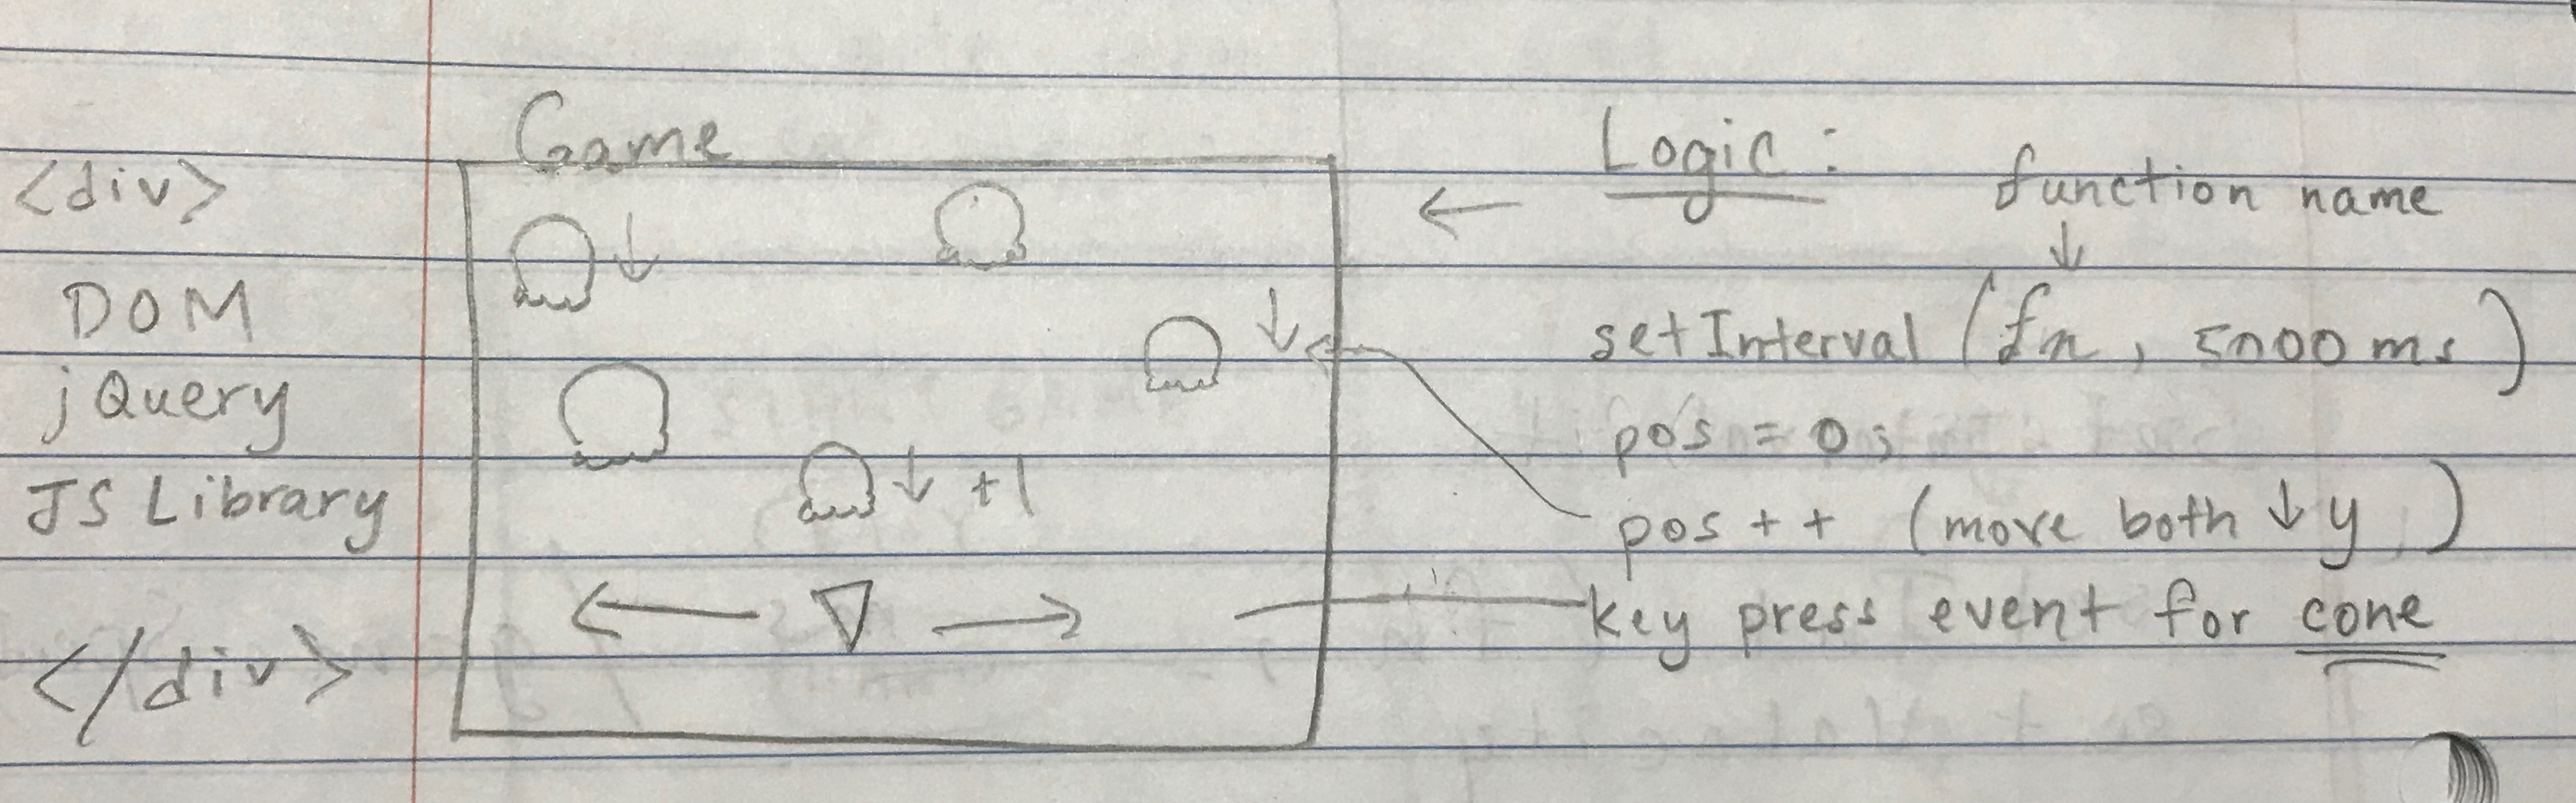 Game
<div>
DOM
jQuery
JS Library
</div>
↓
↓
↓ +1
← ▽ →
Logic:
← function name
↓
setInterval (fn, 5000 ms)
pos = 0;
pos ++ (move both ↓ y )
key press event for cone